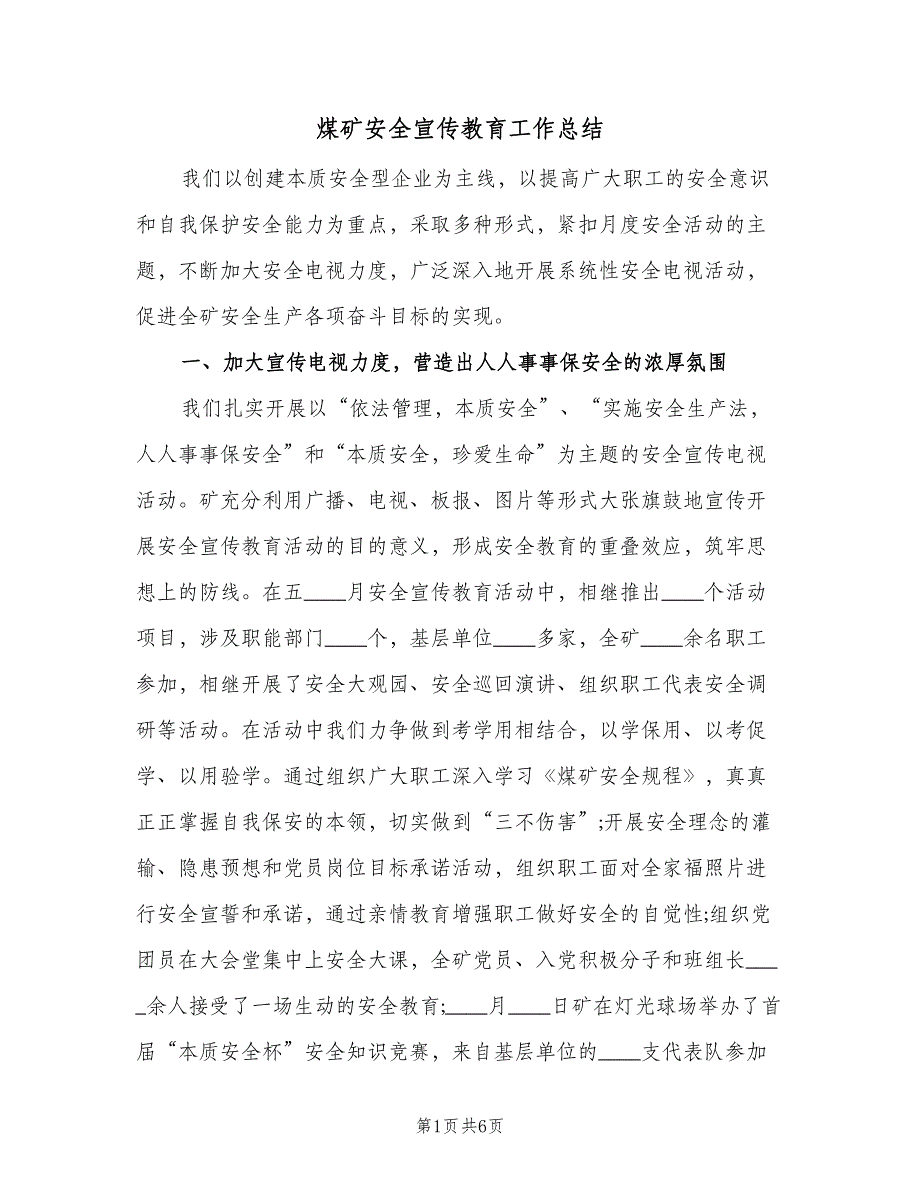 煤矿安全宣传教育工作总结
我们以创建本质安全型企业为主线，以提高广大职工的安全意识
和自我保护安全能力为重点，采取多种形式，紧扣月度安全活动的主
题，不断加大安全电视力度，广泛深入地开展系统性安全电视活动，
促进全矿安全生产各项奋斗目标的实现。
一、加大宣传电视力度，营造出人人事事保安全的浓厚氛围
我们扎实开展以“依法管理，本质安全”、“实施安全生产法，
人人事事保安全”和“本质安全，珍爱生命”为主题的安全宣传电视
活动。矿充分利用广播、电视、板报、图片等形式大张旗鼓地宣传开
展安全宣传教育活动的目的意义，形成安全教育的重叠效应，筑牢思
想上的防线。在五____月安全宣传教育活动中，相继推出____个活动
项目，涉及职能部门____个，基层单位____多家，全矿____余名职工
参加，相继开展了安全大观园、安全巡回演讲、组织职工代表安全调
研等活动。在活动中我们力争做到考学用相结合，以学保用、以考促
学、以用验学。通过组织广大职工深入学习《煤矿安全规程》，真真
正正掌握自我保安的本领，切实做到“三不伤害”;开展安全理念的灌
输、隐患预想和党员岗位目标承诺活动，组织职工面对全家福照片进
行安全宣誓和承诺，通过亲情教育增强职工做好安全的自觉性;组织党
团员在大会堂集中上安全大课，全矿党员、入党积极分子和班组长___
_余人接受了一场生动的安全教育;____月____日矿在灯光球场举办了首
届“本质安全杯”安全知识竞赛，来自基层单位的____支代表队参加
第1页 共6页